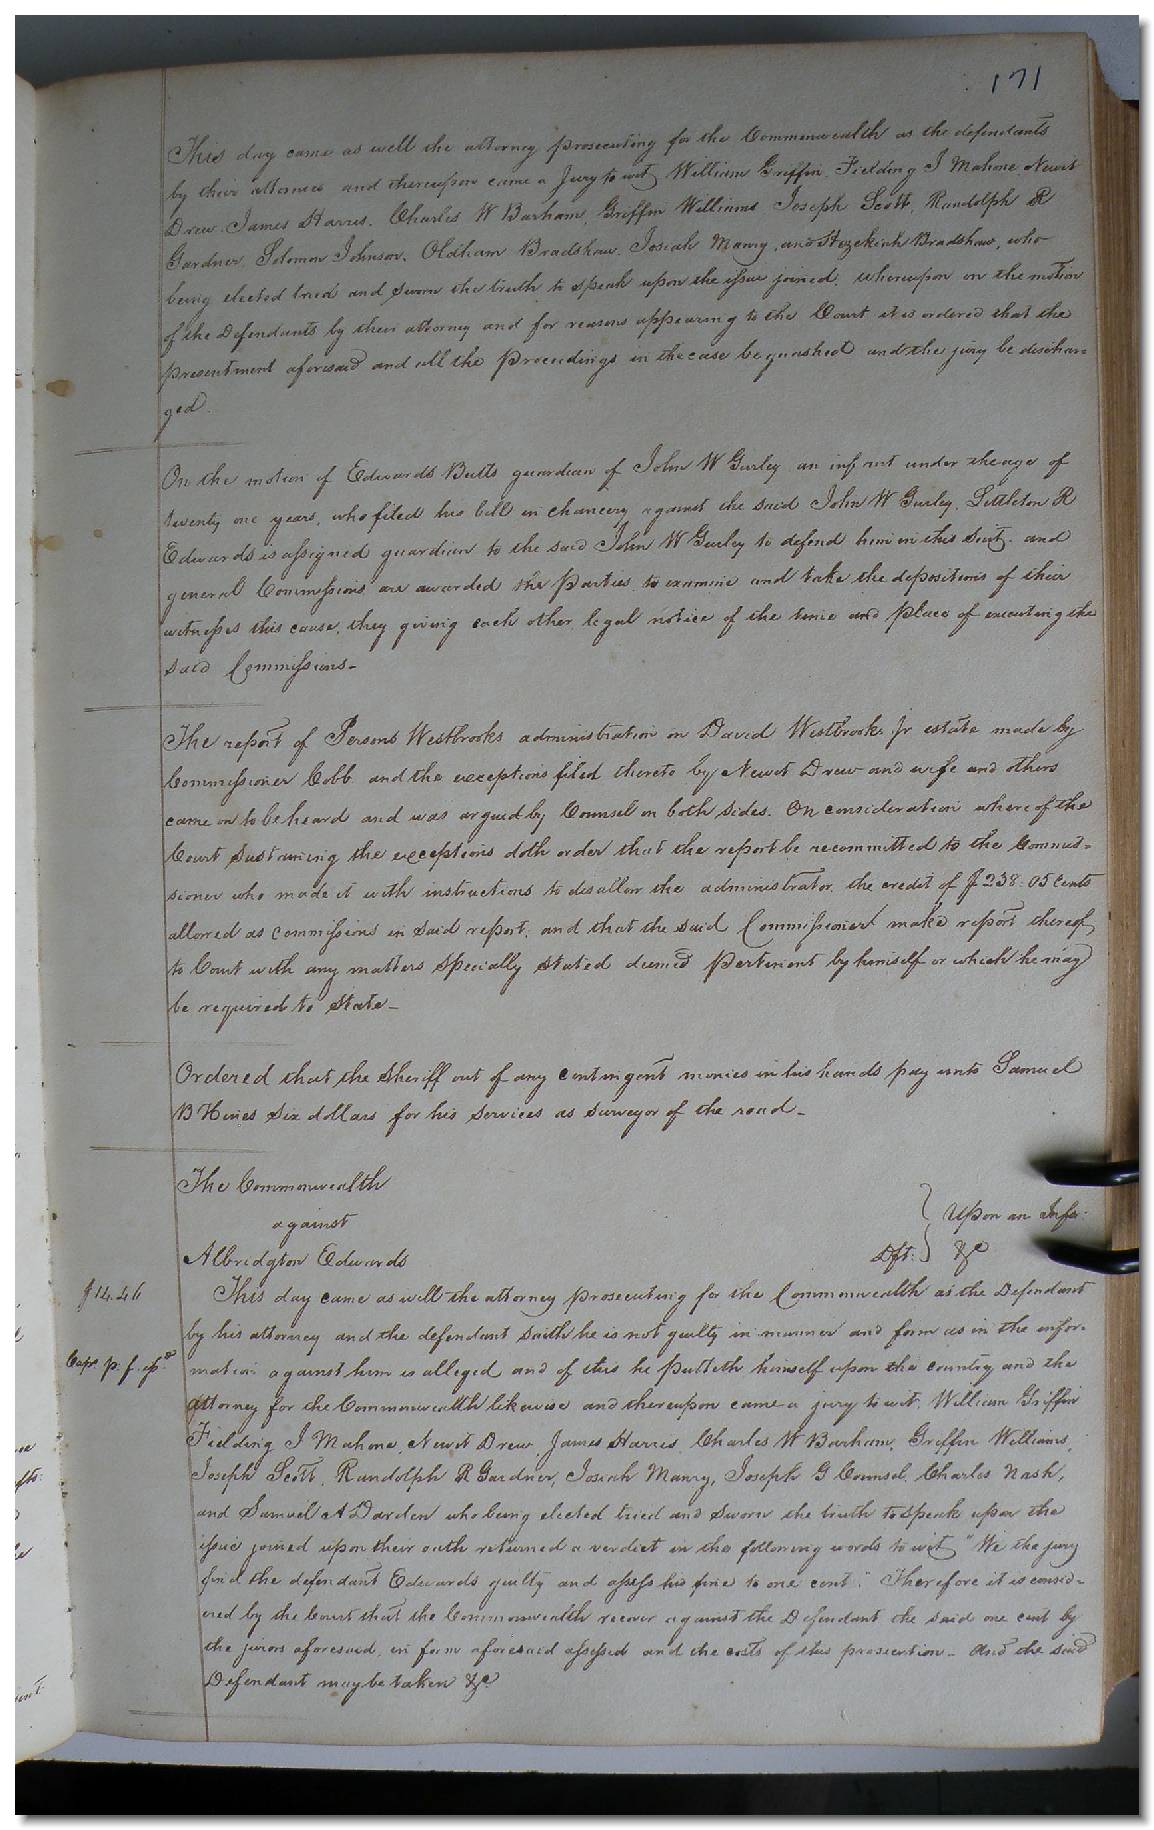 171
This day came as well the attorney prosecuting for the Commonwealth as the defendants
by their attornies and thereupon came a Jury to wit William Griffin, Fielding J Mahone, Newit
Drew. James Harris. Charles W Barham, Griffin Williams Joseph Scott, Randolph R
Gardner, Solomon Johnson, Oldham Bradshaw, Josiah Manry, and Hezekiah Bradshaw, who
being elected tried and sworn the truth to speak upon the issue joined, whereupon on the motion
of the Defendants by their attorney and for reasons appearing to the Court it is ordered that the
presentment aforesaid and all the proceedings in the case be quashed and the jury be dischar=
ged.
On the motion of Edwards Butts guardian of John W Gurley an infant under the age of
twenty one years, who filed his bill in chancery against the said John W Gurley, Littleton R
Edwards is assigned guardian to the said John W Gurley to defend him in this Suit. and
general Commissions are awarded the Parties to examine and take the depositions of their
witnesses this cause, they giving each other legal notice of the time and place of executing the
said Commissions-
The report of Persons Westbrooks administration on David Westbrooks Jr estate made by
Commissioner Cobb and the exceptions filed thereto by Newit Drew and wife and others
came on to be heard and was argued by Counsel on both sides. On consideration whereof the
Court sustaining the exceptions doth order that the report be recommitted to the Commis=
sioner who made it with instructions to disallow the administrator the credit of $238.05 Cents
allowed as commissions in said report, and that the said Commissioner make report thereof
to Court with any matters specially stated deemed pertinent by himself or which he may
be required to state-
Ordered that the Sheriff out of any contingent monies in his hands pay unto Samuel
B Hines Six dollars for his services as surveyor of the road-
The Commonwealth
against } Upon an Infor:
Albridgton Edwards Dft: } &c
$14.46 This day came as well the attorney prosecuting for the Commonwealth as the Defendant
by his attorney and the defendant saith he is not guilty in manner and form as in the infor-
mation against him is alleged and of this he putteth himself upon the country and the
attorney for the Commonwealth likewise and thereupon came a jury to wit, William Griffin
Fielding J Mahone, Newit Drew, James Harris, Charles W Barham, Griffin Williams,
Joseph Scott, Randolph R Gardner, Josiah Manry, Joseph G Counsel, Charles Nash,
and Samuel A Darden who being elected tried and sworn the truth to speak upon the
issue joined upon their oath returned a verdict in the following words to wit "We the jury
find the defendant Edwards guilty and assess his fine to one cent." Therefore it is consid-
ered by the Court that the Commonwealth recover against the Defendant the said one cent by
the jurors aforesaid, in form aforesaid assessed and the costs of this prosecution- And the said
Defendant may be taken &c